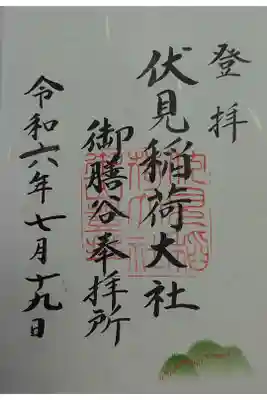 登拝
伏見稲荷大社
御膳谷奉拝所
令和六年七月十九日